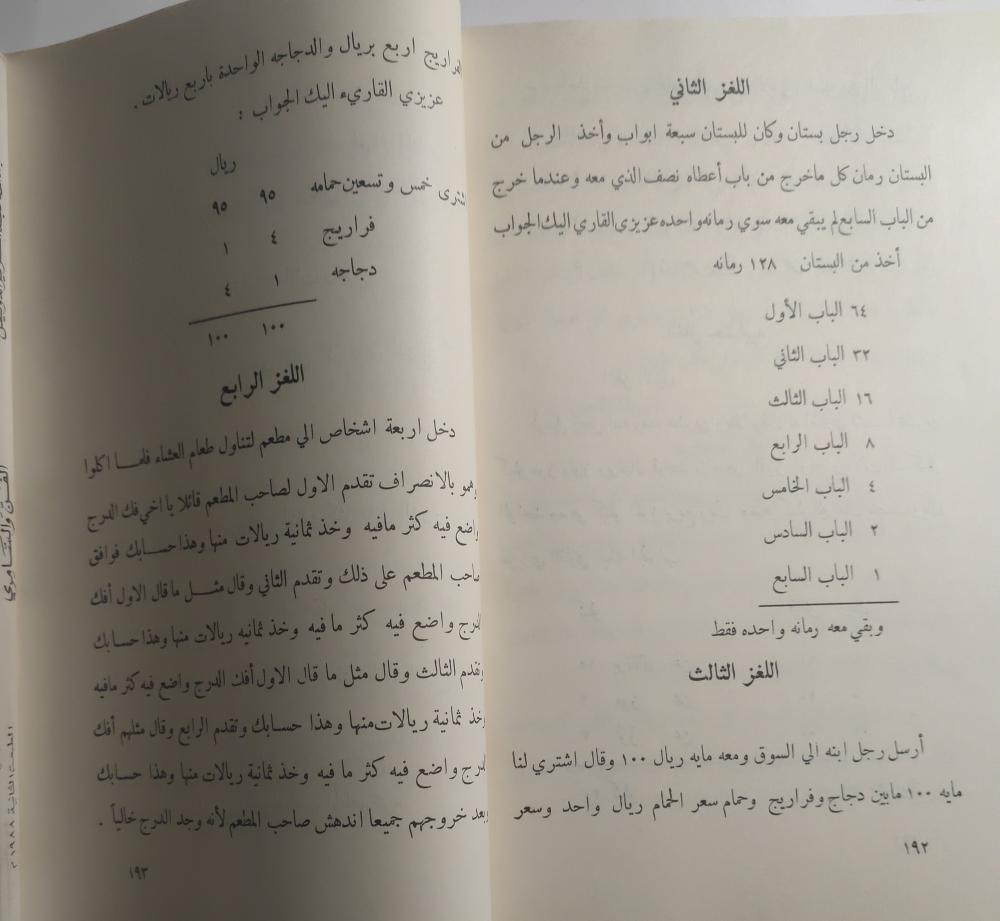 اللغز الثاني
دخل رجل بستان وكان للبستان سبعة ابواب وأخذ الرجل من
البستان رمان كل ماخرج من باب أعطاه نصف الذي معه وعندما خرج
من الباب السابع لم يبقي معه سوي رمانه واحده عزيزي القاري اليك الجواب
أخذ من البستان ١٢٨ رمانه
٦٤ الباب الأول
٣٢ الباب الثاني
١٦ الباب الثالث
٨ الباب الرابع
٤ الباب الخامس
٢ الباب السادس
١ الباب السابع
وبقي معه رمانه واحده فقط
اللغز الثالث
أرسل رجل ابنه الي السوق ومعه مايه ريال ١٠٠ وقال اشتري لنا
مايه ١٠٠ مابين دجاج وفراريج وحمام سعر الحمام ريال واحد وسعر
١٩٢
اربع بريال والدجاجه الواحدة باربع ريالات .
عزيزي القاريء اليك الجواب :
ريال
خمس وتسعين حمامه ٩٥ ٩٥
فراريج ٤ ١
دجاجه ١ ٤
١٠٠ ١٠٠
اللغز الرابع
دخل اربعة اشخاص الي مطعم لتناول طعام العشاء فلما اكلوا
بالانصراف تقدم الاول لصاحب المطعم قائلا يا اخي فك الدرج
واضع فيه كثر مافيه وخذ ثمانية ريالات منها وهذا حسابك فوافق
صاحب المطعم على ذلك وتقدم الثاني وقال مثل ما قال الاول أفك
الدرج واضع فيه كثر ما فيه وخذ ثمانيه ريالات منها وهذا حسابك
وتقدم الثالث وقال مثل ما قال الاول أفك الدرج واضع فيه كثر مافيه
وخذ ثمانية ريالات منها وهذا حسابك وتقدم الرابع وقال مثلهم أفك
الدرج واضع فيه كثر ما فيه وخذ ثمانية ريالات منها وهذا حسابك
وبعد خروجهم جميعا اندهش صاحب المطعم لأنه وجد الدرج خالياً .
١٩٣
الفن والسامري
الطبعة الثانية ١٩٨٨ م